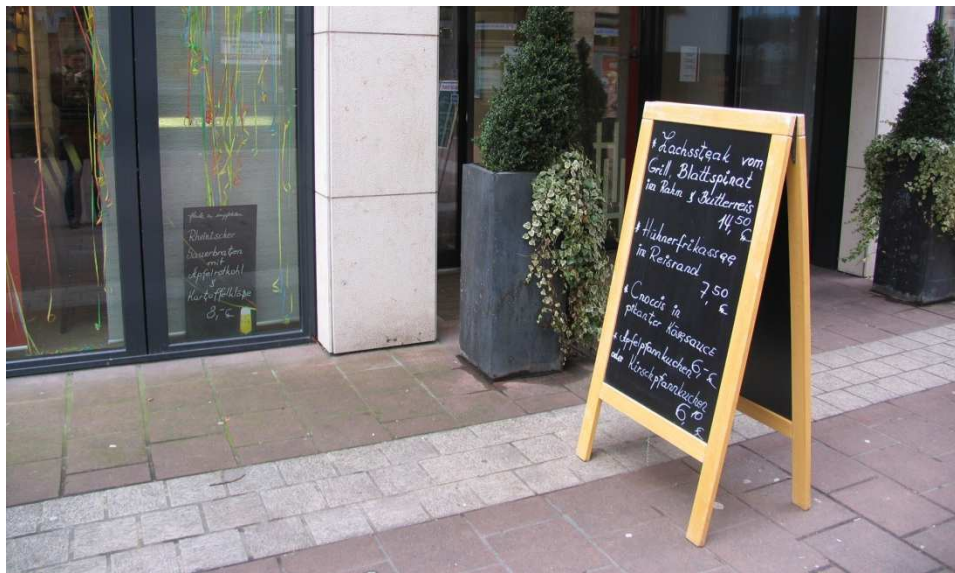 Rheinischer
Sauerbraten
mit
Apfelrotkohl
&
Kartoffelklöße
8,- €
* Lachssteak vom
Grill, Blattspinat
in Rahm & Butterreis
14,50 €
* Hühnerfrikassee
im Reisrand
7,50 €
* Cnoccis in
pikanter KÄSESAUCE
6,- €
* Apfelpfannkuchen
oder Kirschpfannkuchen
6,10 €